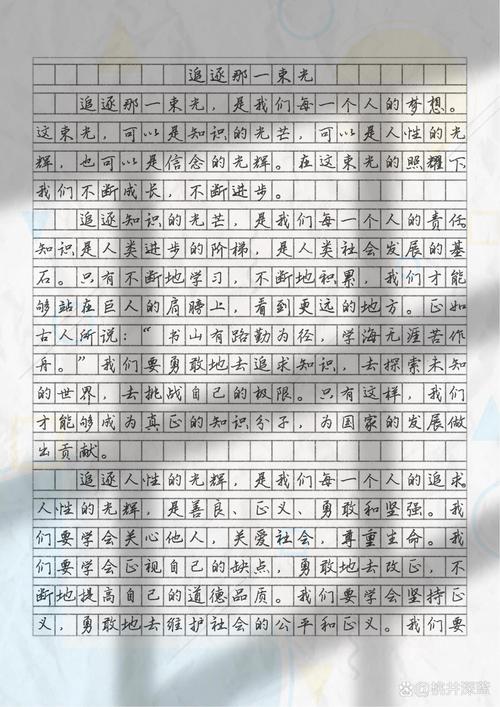 追逐那一束光
追逐那一束光，是我们每一个人的梦想。
这束光，可以是知识的光芒，可以是人性的光
辉，也可以是信念的光辉。在这束光的照耀下
我们不断成长，不断进步。
追逐知识的光芒，是我们每一个人的责任
知识是人类进步的阶梯，是人类社会发展的基
石。只有不断地学习，不断地积累，我们才能
够站在巨人的肩膀上，看到更远的地方。正如
古人所说：“书山有路勤为径，学海无涯苦作
舟。”我们要勇敢地去追求知识，去探索未知
的世界，去挑战自己的极限。只有这样，我们
才能够成为真正的知识分子，为国家的发展做
出贡献。
追逐人性的光辉，是我们每一个人的追求
人性的光辉，是善良、正义、勇敢和坚强。我
们要学会关心他人，关爱社会，尊重生命。我
们要学会正视自己的缺点，勇敢地去改正，不
断地提高自己的道德品质。我们要学会坚持正
义，勇敢地去维护社会的公平和正义。我们要
百家号/桃井深蓝